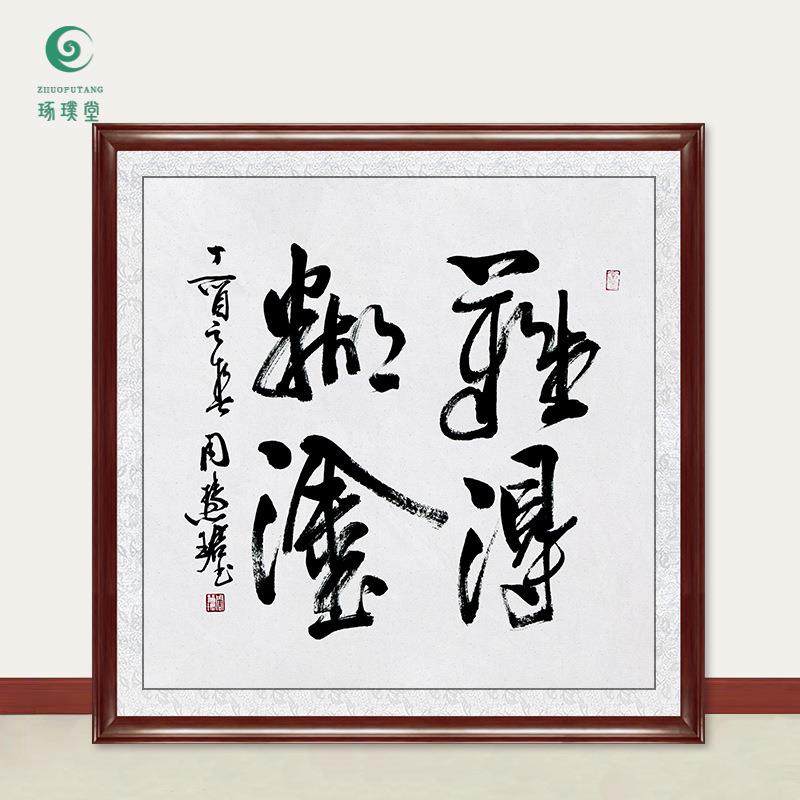 ZHUOPUTANG
琢璞堂
難得
糊塗
之春周慧珺書